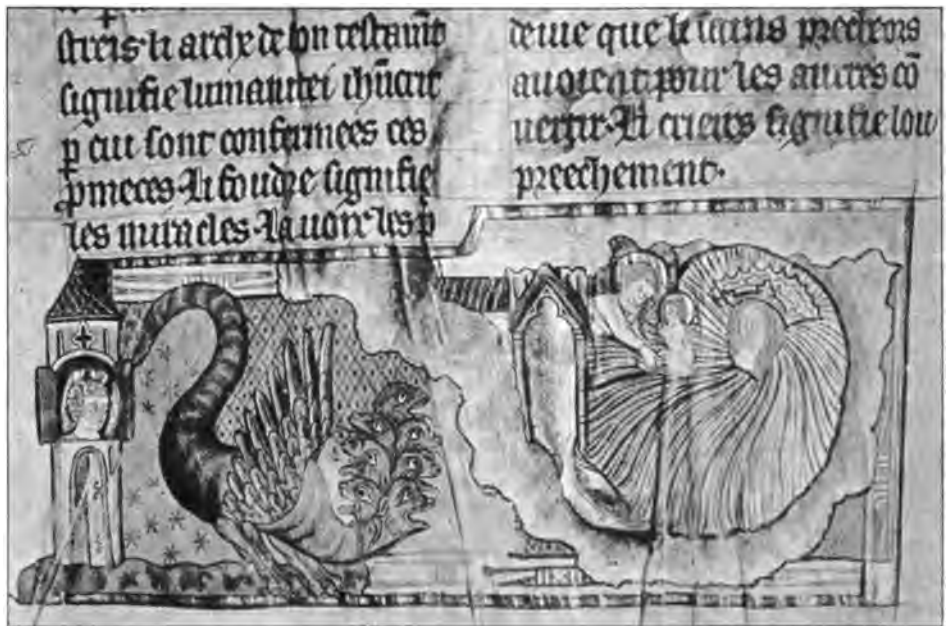 streis· li arche de son testamt̄
signifie lumanitei ihūcrit
p̱ cui sont confermees ces
p̱meces· Li foudre signifie
les miracles· La uoix· les p̱
deiue que li sains precheors
auoient pour les autres cō
uertir· Li crieirs signifie lou
preechement·